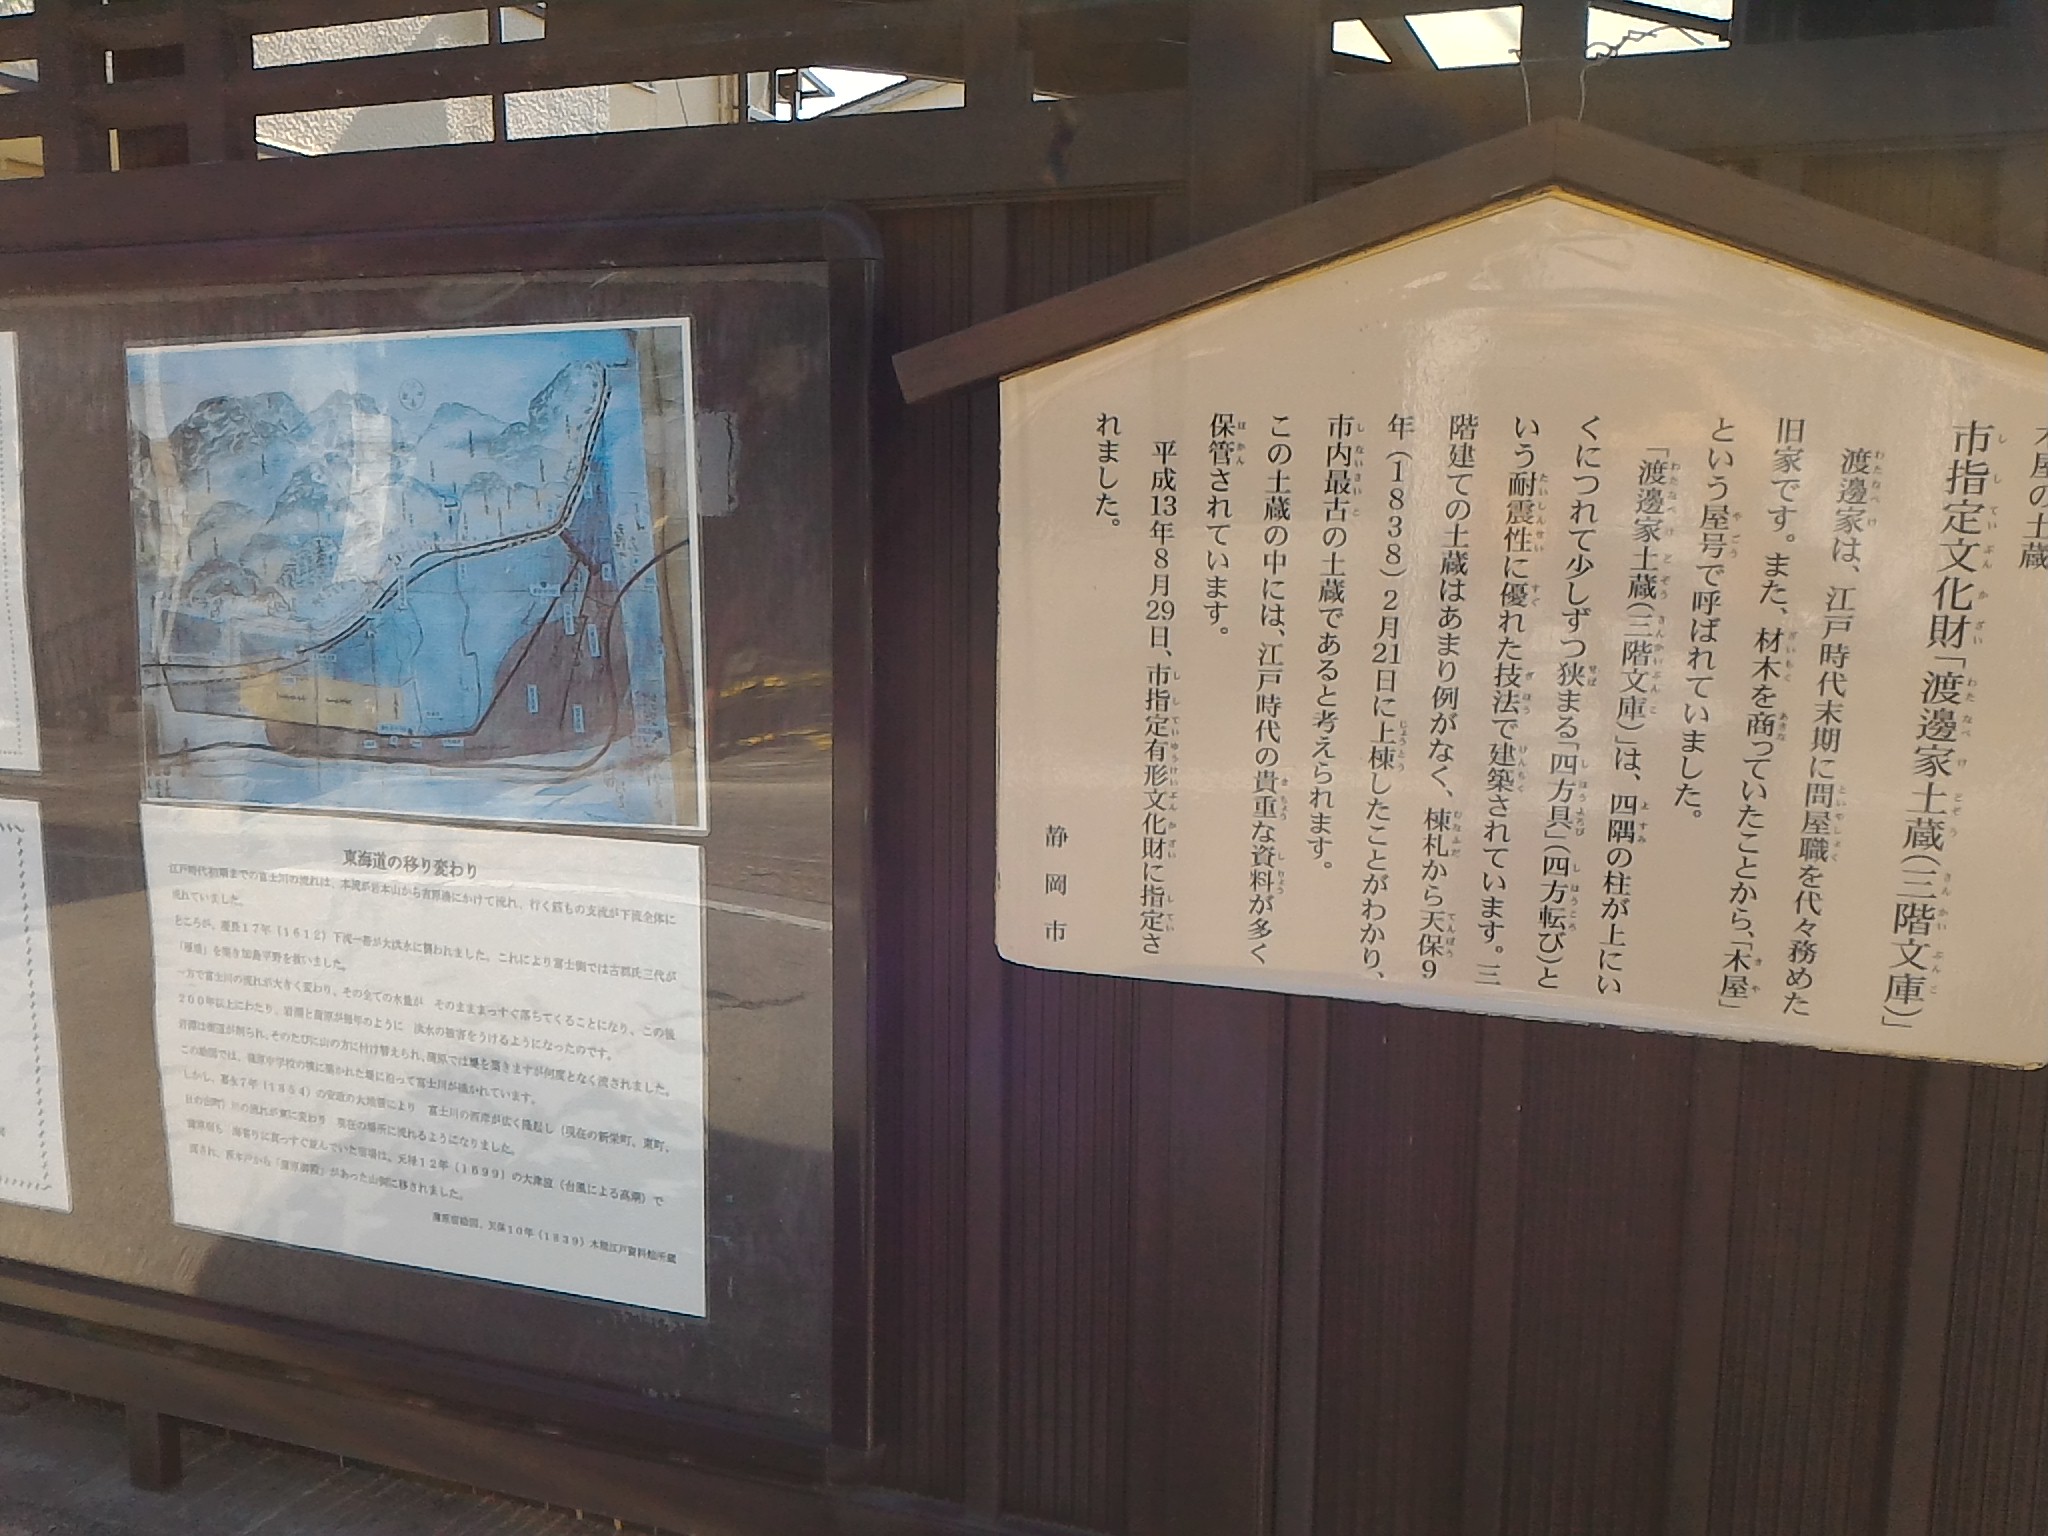 木屋の土蔵
市指定文化財「渡邊家土蔵（三階文庫）」
渡邊家は、江戸時代末期に問屋職を代々務めた
旧家です。また、材木を商っていたことから、「木屋」
という屋号で呼ばれていました。
「渡邊家土蔵（三階文庫）」は、四隅の柱が上にい
くにつれて少しずつ狭まる「四方具」（四方転び）と
いう耐震性に優れた技法で建築されています。三
階建ての土蔵はあまり例がなく、棟札から天保9
年（1838）2月21日に上棟したことがわかり、
市内最古の土蔵であると考えられます。
この土蔵の中には、江戸時代の貴重な資料が多く
保管されています。
平成13年8月29日、市指定有形文化財に指定さ
れました。
静岡市
東海道の移り変わり
江戸時代初期までの富士川の流れは、本流が岩本山から吉原湊にかけて流れ、行く筋もの支流が下流全体に
流れていました。
ところが、慶長17年（1612）下流一帯が大洪水に襲われました。これにより富士側では古郡氏三代が
「雁堤」を築き加島平野を救いました。
一方で富士川の流れが大きく変わり、その全ての水量が そのまままっすぐ落ちてくることになり、この後
200年以上にわたり、岩淵と蒲原が毎年のように 洪水の被害をうけるようになったのです。
岩淵は街道が削られ、そのたびに山の方に付け替えられ、蒲原では堤を築きますが何度となく流されました。
この絵図では、蒲原中学校の横に築かれた堤に沿って富士川が描かれています。
しかし、嘉永7年（1854）の安政の大地震により 富士川の西岸が広く隆起し（現在の新栄町、東町、
日の出町）川の流れが東に変わり 現在の場所に流れるようになりました。
蒲原宿も 海寄りに真っすぐ並んでいた宿場は、元禄12年（1699）の大津波（台風による高潮）で
流され、西木戸から「蒲原御殿」があった山側に移されました。
蒲原宿絵図、天保10年（1839）木屋江戸資料館所蔵